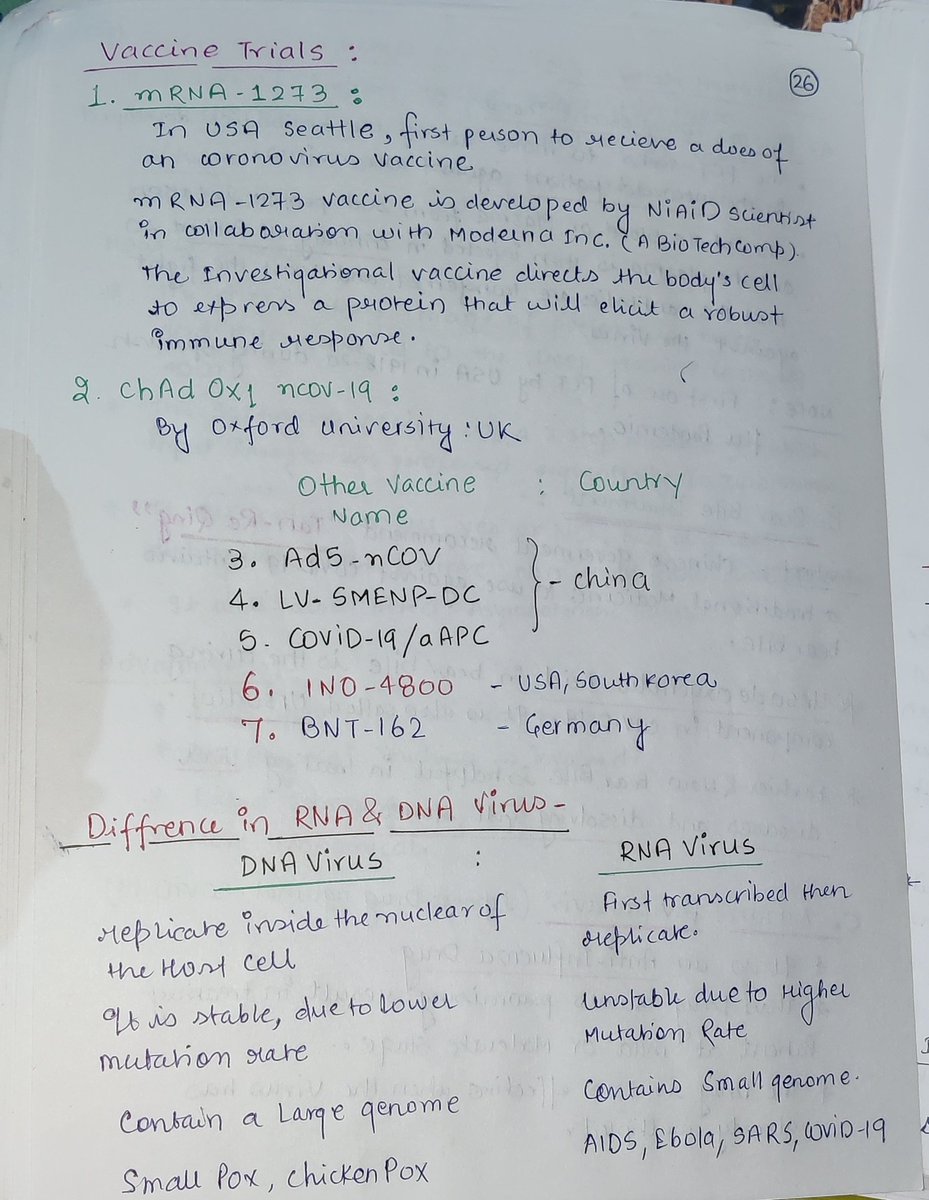 Vaccine Trials :
26
1. mRNA-1273 :
In USA Seattle, first person to recieve a does of
an coronovirus vaccine
mRNA-1273 vaccine is developed by NiAiD Scientist
in collaboration with Moderna Inc. (A BioTech comp).
The Investigational vaccine directs the body's cell
to express a protein that will elicit a robust
immune response.
2. ChAd Ox1 ncov-19 :
By Oxford university : UK
Other Vaccine : Country
Name
3. Ad5-nCOV
4. LV-SMENP-DC } - china
5. COViD-19/aAPC
6. INO-4800 - USA, South Korea
7. BNT-162 - Germany
Diffrence in RNA & DNA Virus -
DNA Virus : RNA Virus
replicate inside the nuclear of
the Host cell
First transcribed then
replicate.
It is stable, due to lower
mutation rate
Unstable due to Higher
Mutation Rate
Contain a Large genome
Contains Small genome.
Small Pox, chicken Pox
AIDS, Ebola, SARS, COViD-19